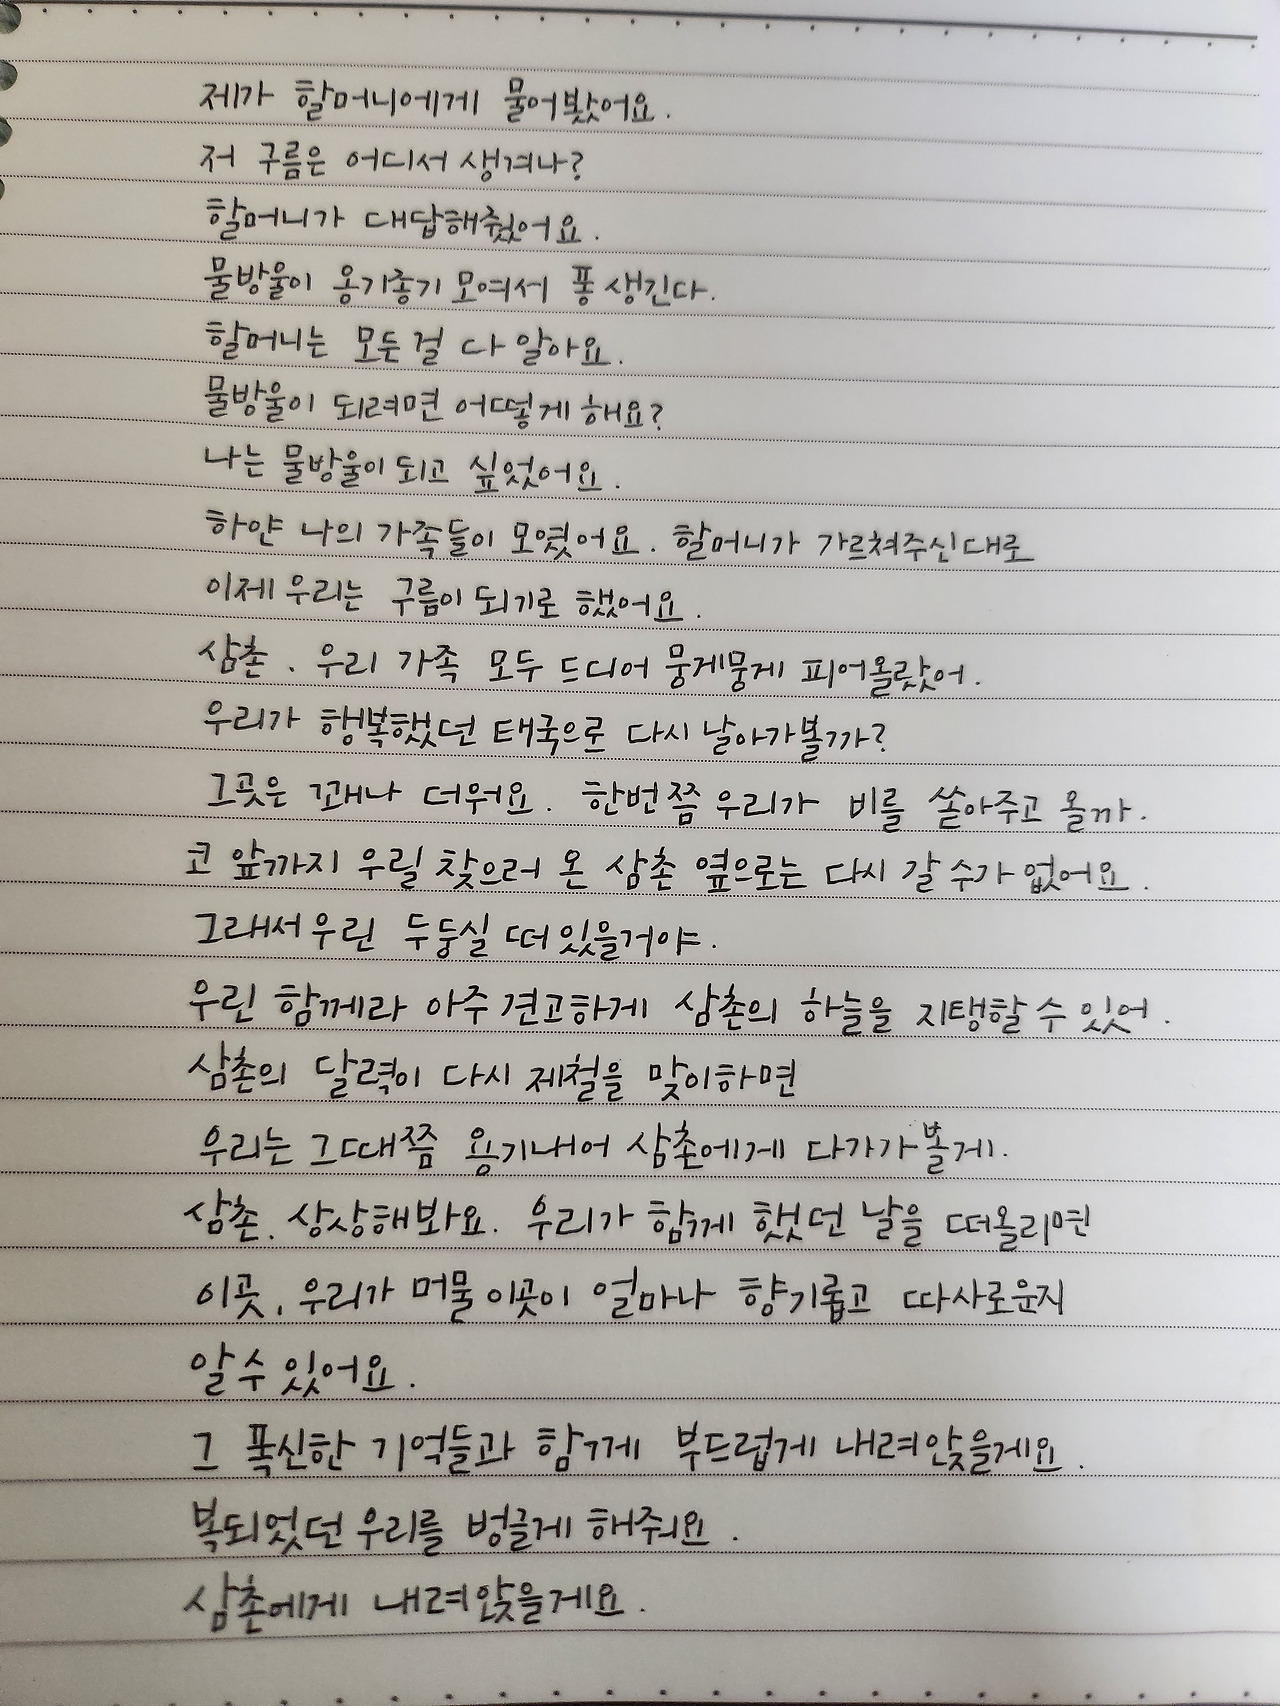 제가 할머니에게 물어봤어요.
저 구름은 어디서 생겨나?
할머니가 대답해줬어요.
물방울이 옹기종기 모여서 퐁 생긴다.
할머니는 모든걸 다 알아요.
물방울이 되려면 어떻게 해요?
나는 물방울이 되고 싶었어요.
하얀 나의 가족들이 모였어요. 할머니가 가르쳐주신대로
이제 우리는 구름이 되기로 했어요.
삼촌. 우리 가족 모두 드디어 뭉게뭉게 피어올랐어.
우리가 행복했던 태국으로 다시 날아가볼까?
그곳은 꽤나 더워요. 한번쯤 우리가 비를 쏟아주고 올까.
코 앞까지 우릴 찾으러 온 삼촌 옆으로는 다시 갈 수가 없어요.
그래서 우린 두둥실 떠 있을거야.
우린 함께라 아주 견고하게 삼촌의 하늘을 지탱할 수 있어.
삼촌의 달력이 다시 제철을 맞이하면
우리는 그때쯤 용기내어 삼촌에게 다가가볼게.
삼촌. 상상해봐요. 우리가 함께 했던 날을 떠올리면
이곳, 우리가 머물 이곳이 얼마나 향기롭고 따사로운지
알 수 있어요.
그 폭신한 기억들과 함께 부드럽게 내려앉을게요.
복되었던 우리를 벙글게 해줘요.
삼촌에게 내려앉을게요.